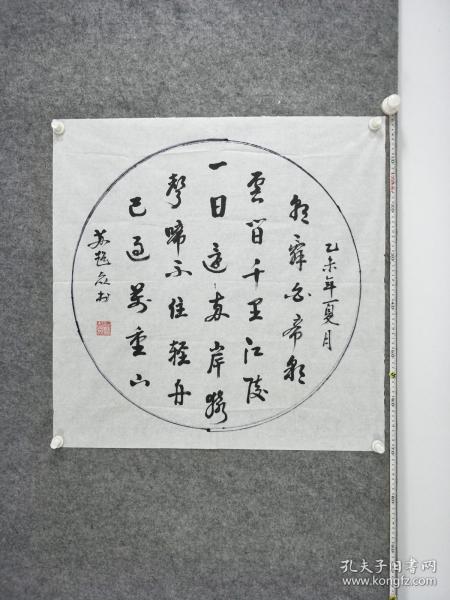 乙未年夏月
朝辭白帝彩
雲間千里江陵
一日還兩岸猿
聲啼不住輕舟
已過萬重山
苏书
孔夫子旧书网
www.kongfz.com